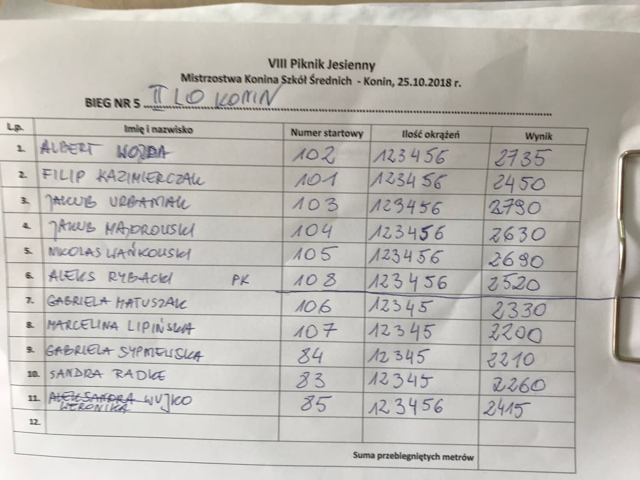 VIII Piknik Jesienny
Mistrzostwa Konina Szkół Średnich - Konin, 25.10.2018 r.
BIEG NR 5 II LO KONIN
L.p. Imię i nazwisko Numer startowy Ilość okrążeń Wynik
1. ALBERT WOJDA 102 123456 2735
2. FILIP KAZIMIERCZAK 101 123456 2450
3. JAKUB URBANIAK 103 123456 2790
4. JAKUB MAJDROWSKI 104 123456 2630
5. NIKOLAS WAŃKOWSKI 105 123456 2690
6. ALEKS RYBACKI PK 108 123456 2520
7. GABRIELA MATUSZAK 106 12345 2330
8. MARCELINA LIPIŃSKA 107 12345 2200
9. GABRIELA 84 12345 2210
10. SANDRA RADKE 83 12345 2260
11. ALEKSANDRA WUJKO 85 123456 2415
WERONIKA
12.
Suma przebiegniętych metrów